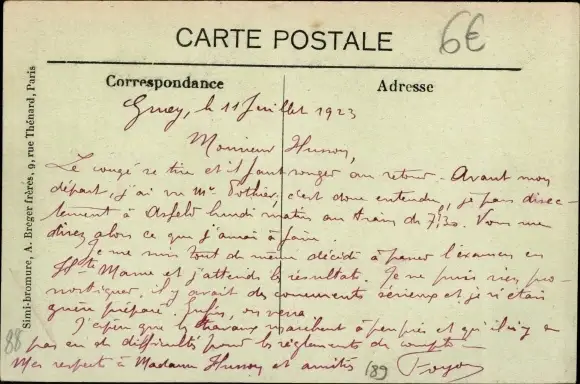 6€
CARTE POSTALE
Correspondance
Adresse
Simi-bromure, A. Breger frères, 9, rue Thénard, Paris
le 11 Juillet 1923
Monsieur Husson,
Le congé se tire et il faut songer au retour. Avant mon
départ, j'ai vu Mr Pothier, c'est donc entendu, je pars direc-
tement à Asfeld lundi matin au train de 7h30. Vous me
direz alors ce que j'aurai à faire.
Je me suis tout de même décidé à passer l'examen en
Hte Marne et j'attends le résultat. Je ne puis rien pro-
nostiquer, il y avait des concurrents sérieux et je n'étais
guère préparé. Enfin, on verra
J'espère que les travaux marchent à peu près et qu'il n'y a
pas eu de difficultés pour les règlements de compte
Mes respects à Madame Husson et amitiés
88
189